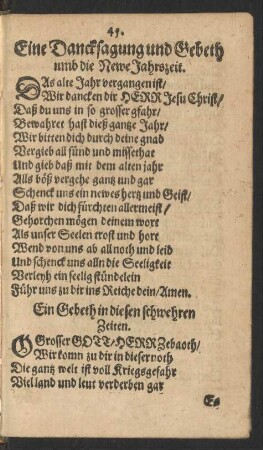 45.
Eine Dancksagung und Gebeth
umb die Newe Jahrszeit.
DAs alte Jahr vergangen ist/
Wir dancken dir HERR Jesu Christ/
Daß du uns in so grosser gfahr/
Bewahret hast dieß gantze Jahr/
Wir bitten dich durch deine gnad
Vergieb all sünd und missethat
Und gieb daß mit dem alten jahr
Alls böß vergehe gantz und gar
Schenck uns ein newes hertz und Geist/
Daß wir dich fürchten allermeist/
Gehorchen mögen deinem wort
Als unser Seelen trost und hort
Wend von uns ab all noth und leid
Und schenck uns alln die Seeligkeit
Verleyh ein seelig stündelein
Führ uns zu dir ins Reiche dein/ Amen.
Ein Gebeth in diesen schwehren
Zeiten.
O Grosser GOTT/ HERR Zebaoth/
Wir komn zu dir in dieser noth
Die gantz welt ist voll Kriegsgefahr
Viel land und leut verderben gar